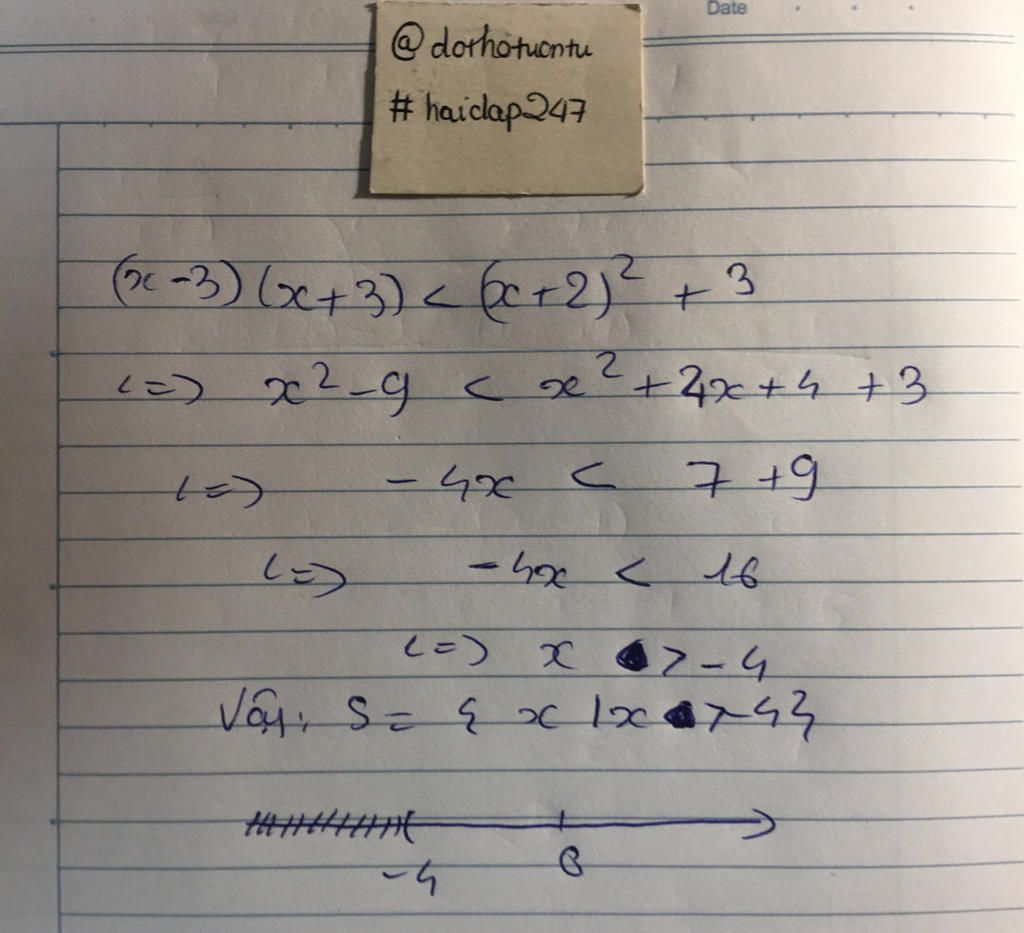 Date
@dorhotuontu
#haidap247
(x-3)(x+3) < (x+2)² + 3
<=> x² - 9 < x² + 4x + 4 + 3
<=> - 4x < 7 + 9
<=> - 4x < 16
<=> x > - 4
Vậy: S = { x | x > -4 }
-4 0